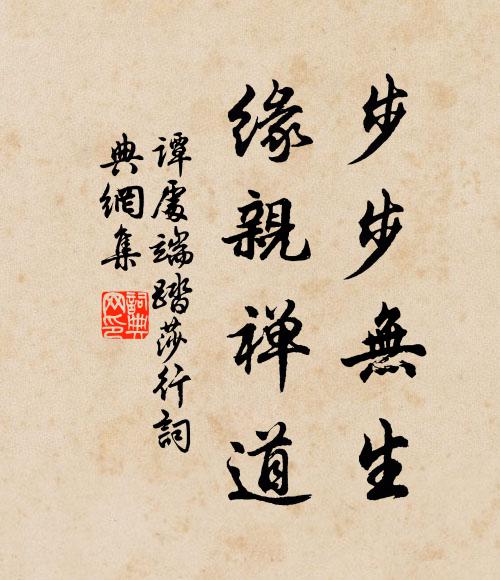 步步無生
緣親禅道
譚處端踏莎行詞
典網集
詞典
网印